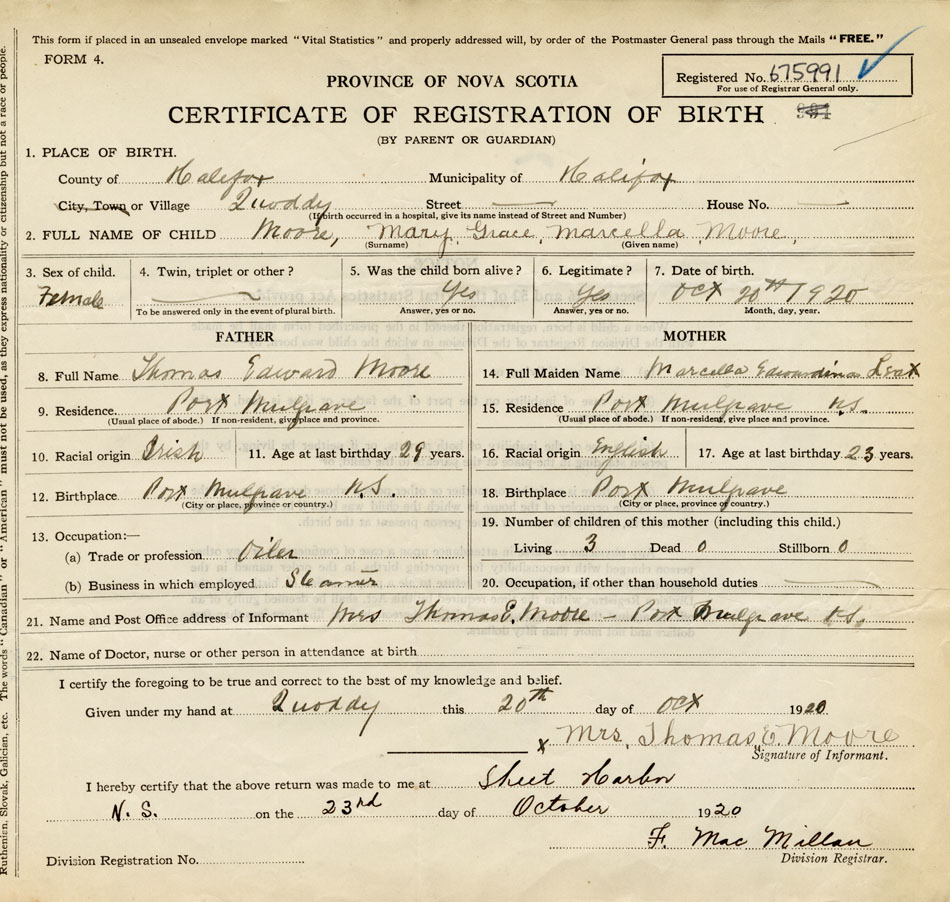 This form if placed in an unsealed envelope marked "Vital Statistics" and properly addressed will, by order of the Postmaster General pass through the Mails "FREE."
FORM 4.
Registered No. 675991
For use of Registrar General only.
PROVINCE OF NOVA SCOTIA
CERTIFICATE OF REGISTRATION OF BIRTH
(BY PARENT OR GUARDIAN)
1. PLACE OF BIRTH.
County of Halifax Municipality of Halifax
City, Town or Village Quoddy Street — House No. —
(If birth occurred in a hospital, give its name instead of Street and Number)
2. FULL NAME OF CHILD Moore, Mary Grace, Marcella Moore,
(Surname) (Given name)
3. Sex of child. 4. Twin, triplet or other? 5. Was the child born alive? 6. Legitimate? 7. Date of birth.
Female — Yes Yes Oct 20th 1920
To be answered only in the event of plural birth. Answer, yes or no. Answer, yes or no. Month, day, year.
FATHER
8. Full Name Thomas Edward Moore
9. Residence. Port Mulgrave
(Usual place of abode.) If non-resident, give place and province.
10. Racial origin Irish 11. Age at last birthday 29 years.
12. Birthplace Port Mulgrave N.S.
(City or place, province or country.)
13. Occupation:—
(a) Trade or profession. Oiler
(b) Business in which employed Steamer
MOTHER
14. Full Maiden Name Marcella Edwardina
15. Residence Port Mulgrave N.S.
(Usual place of abode.) If non-resident, give place and province.
16. Racial origin English 17. Age at last birthday 23 years.
18. Birthplace Port Mulgrave
(City or place, province or country.)
19. Number of children of this mother (including this child.)
Living 3 Dead 0 Stillborn 0
20. Occupation, if other than household duties —
21. Name and Post Office address of Informant Mrs Thomas E. Moore – Port Mulgrave N.S.
22. Name of Doctor, nurse or other person in attendance at birth
I certify the foregoing to be true and correct to the best of my knowledge and belief.
Given under my hand at Quoddy this 20th day of Oct 1920
x Mrs. Thomas E. Moore
Signature of Informant.
I hereby certify that the above return was made to me at Sheet Harbor
N. S. on the 23rd day of October 1920
F. Mac Millan
Division Registration No. Division Registrar.
Ruthenien, Slovak, Galician, etc. The words "Canadian" or "American" must not be used, as they express nationality or citizenship but not a race or people.